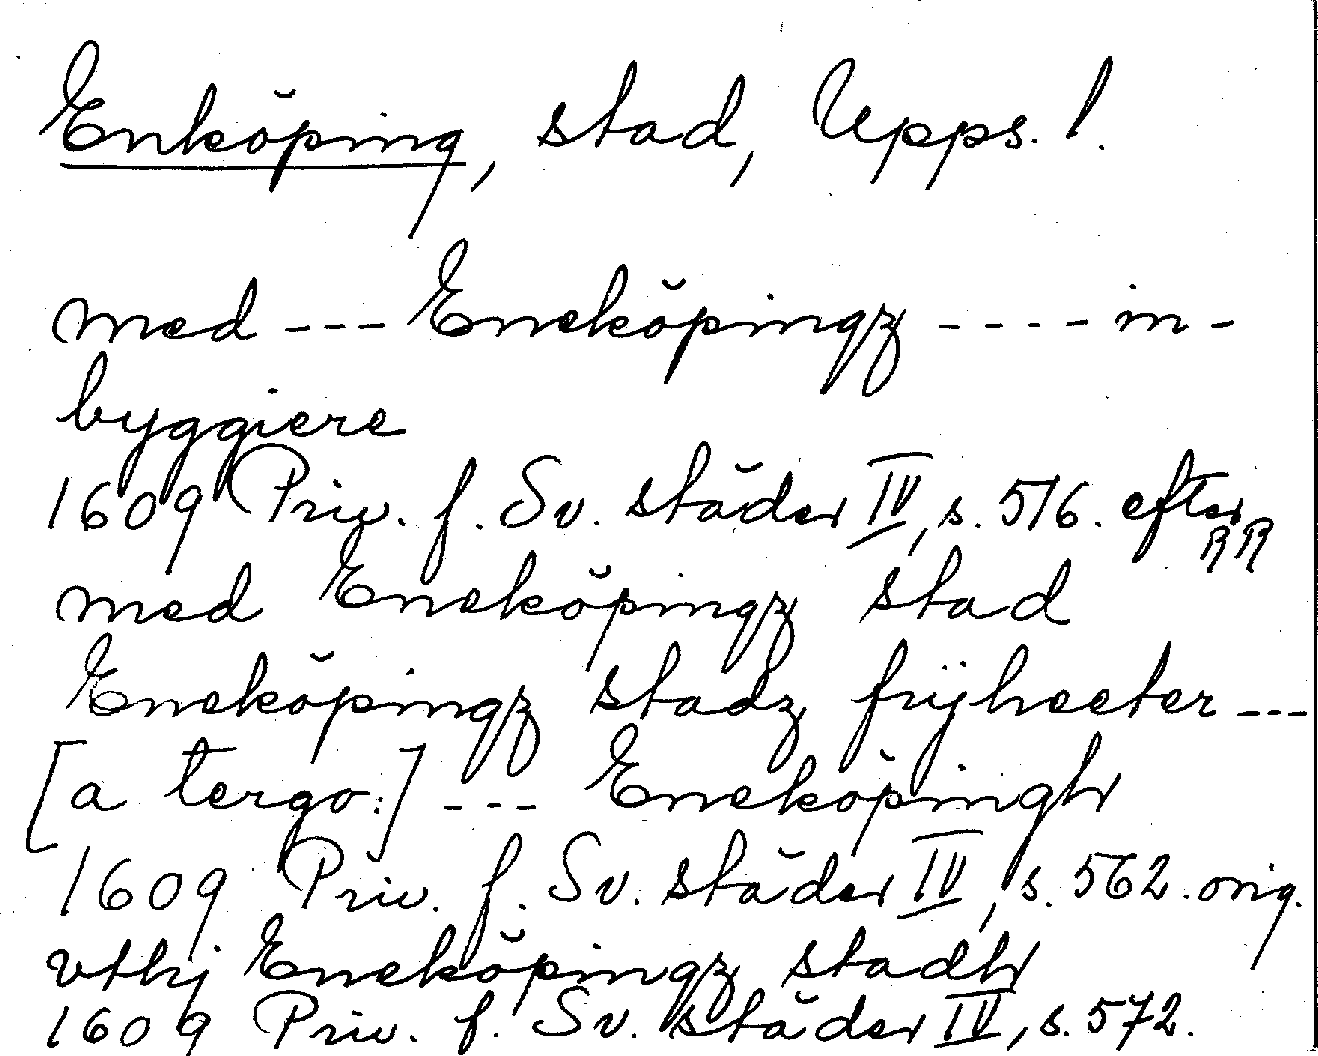 Enköping, stad, Upps. l.
med --- Eneköpingz ---- in-
byggiere
1609 Priv. f. Sv. städer IV, s. 516. efter RR
med Eneköpingz stad
Eneköpingz stadz frijheeter ---
[a tergo:] --- Enekopingh
1609 Priv. f. Sv. städer IV, s. 562. orig.
vthj Eneköpingz stadh
1609 Priv. f. Sv. städer IV, s. 572.